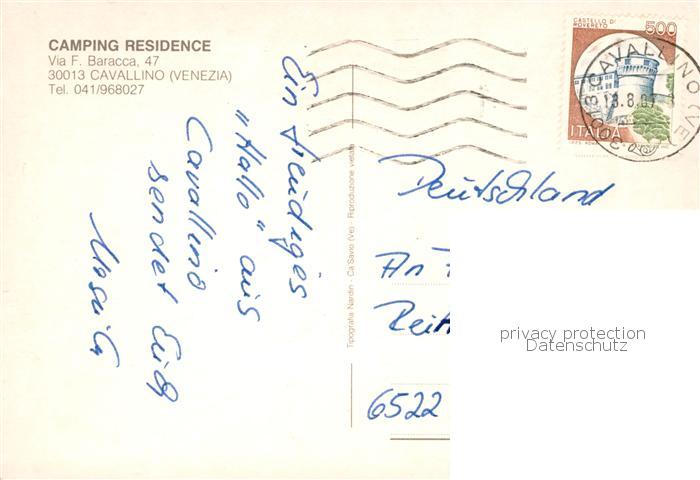 CAMPING RESIDENCE
Via F. Baracca, 47
30013 CAVALLINO (VENEZIA)
Tel. 041/968027
Ein freudiges
"Hallo" aus
Cavallino
sendet Euch
Tipografia Nardin - Ca'Savio (Ve) - Riproduzione vietata
CASTELLO DI
ROVERETO
500
ITALIA
30013 CAVALLINO (VE)
13.8.
Deutschland
An
Reit
6522
privacy protection
Datenschutz